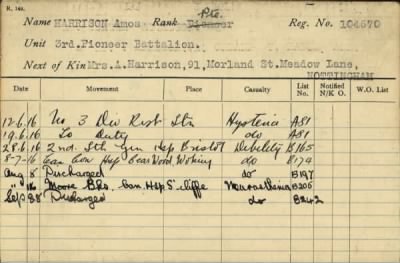 R. 149.
Name HARRISON Amos Rank Pioneer Pte. Reg. No. 104670
Unit 3rd. Pioneer Battalion.
Next of Kin Mrs. A. Harrison, 91, Morland St. Meadow Lane, NOTTINGHAM
Date Movement Place Casualty List No. Notified N/K O. W.O. List
12.6.16 No 3 Div Rest Stn Hysteria A81
19.6.16 To Duty do A81
28.6.16 2nd. Sth Gen Hsp Bristol Debility B165
8-7-16 Can Con Hsp Bear Wood Woking do B174
Aug 8 Discharged do B197
" 16 Moore Bks. Can. Hsp S'cliffe Neurasthenia B206
Sep 28 Discharged do B242